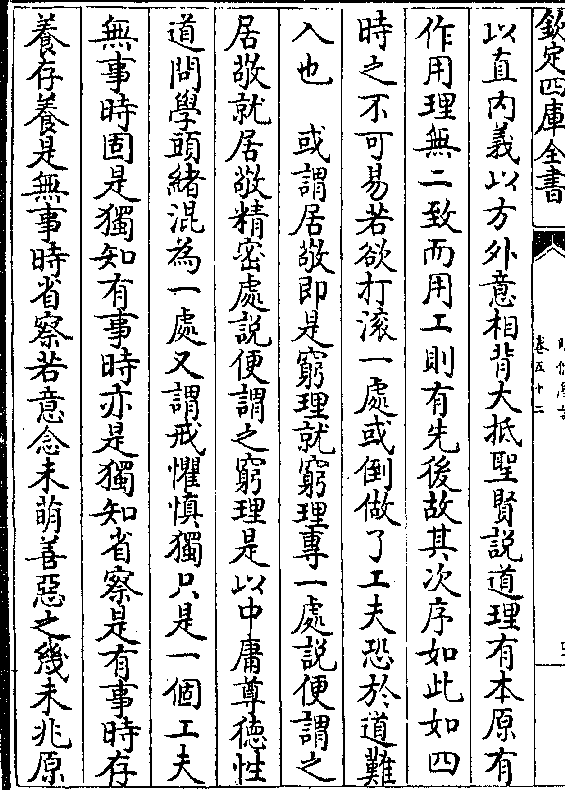 欽定四庫全書
卷五十二
以直内義以方外意相背大抵聖賢説道理有本原有
作用理無二致而用工則有先後故其次序如此如四
時之不可易若欲打滚一處或倒做了工夫恐於道難
入也　或謂居敬即是窮理就窮理專一處説便謂之
居敬就居敬精密處説便謂之窮理是以中庸尊徳性
道問學頭緒混為一處又謂戒懼慎獨只是一個工夫
無事時固是獨知有事時亦是獨知省察是有事時存
養存養是無事時省察若意念未萌善惡之幾未兆原